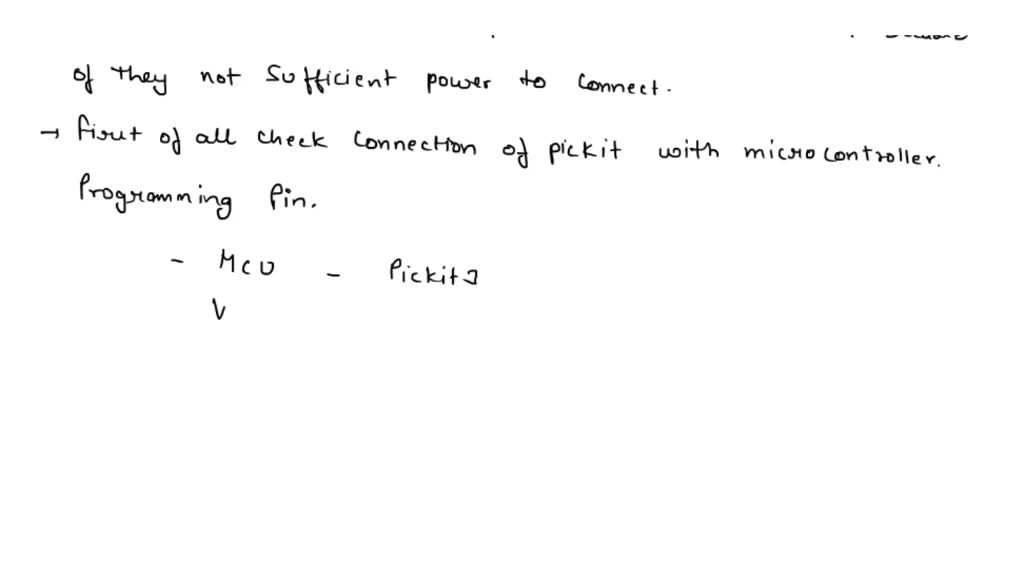 of they not Sufficient power to Connect.
→ first of all check Connection of pickit with microcontroller.
Programming Pin.
- MCU - Pickit3
V